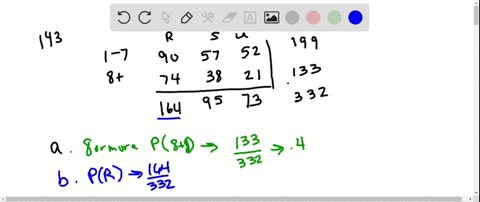 143
R S U
1-7 90 57 52 199
8+ 74 38 21 133
164 95 73 332
a. 8 or more P(8+) → 133/332 → .4
b. P(R) → 164/332